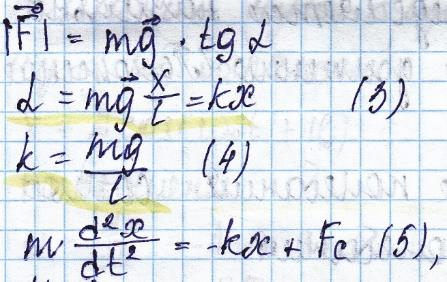 |F⃗| = mg⃗ · tg α
α = mg⃗ x/l = kx (3)
k = mg/l (4)
m d²x/dt² = -kx + Fc (5),